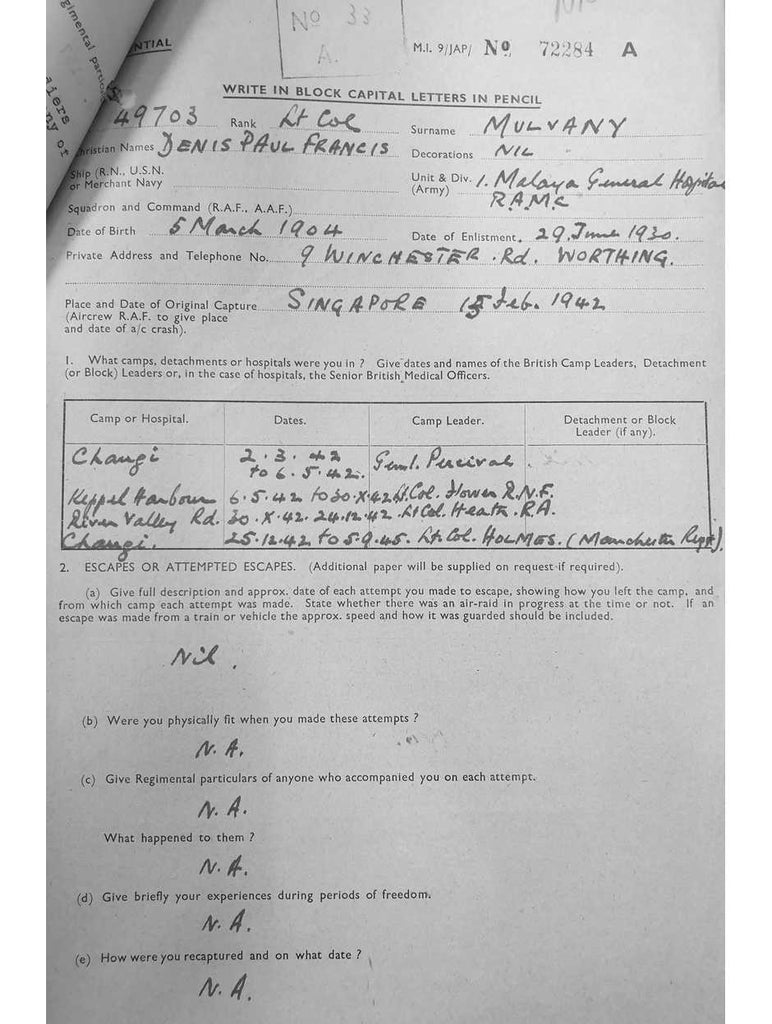 No 33
A.
NTIAL
M.I. 9/JAP/ No 72284 A
WRITE IN BLOCK CAPITAL LETTERS IN PENCIL
49703 Rank Lt Col Surname MULVANY
Christian Names DENIS PAUL FRANCIS Decorations NIL
Ship (R.N., U.S.N. or Merchant Navy
Unit & Div. (Army) 1. Malaya General Hospital
R.A.M.C
Squadron and Command (R.A.F., A.A.F.)
Date of Birth 5 March 1904 Date of Enlistment. 29. June 1930.
Private Address and Telephone No. 9 WINCHESTER Rd. WORTHING.
Place and Date of Original Capture SINGAPORE 15 Feb. 1942
(Aircrew R.A.F. to give place
and date of a/c crash).
1. What camps, detachments or hospitals were you in ? Give dates and names of the British Camp Leaders, Detachment
(or Block) Leaders or, in the case of hospitals, the Senior British Medical Officers.
Camp or Hospital. Dates. Camp Leader. Detachment or Block
Leader (if any).
Changi 2.3.42 Genl. Percival
to 6.5.42.
Keppel Harbour 6.5.42 to 30.X.42 Lt. Col. Flower R.N.F.
River Valley Rd. 30.X.42. 24.12.42. Lt Col. Heath. R.A.
Changi. 25.12.42 to 5.9.45. Lt. Col. HOLMES. (Manchester Regt).
2. ESCAPES OR ATTEMPTED ESCAPES. (Additional paper will be supplied on request if required).
(a) Give full description and approx. date of each attempt you made to escape, showing how you left the camp, and
from which camp each attempt was made. State whether there was an air-raid in progress at the time or not. If an
escape was made from a train or vehicle the approx. speed and how it was guarded should be included.
Nil.
(b) Were you physically fit when you made these attempts ?
N.A.
(c) Give Regimental particulars of anyone who accompanied you on each attempt.
N.A.
What happened to them ?
N.A.
(d) Give briefly your experiences during periods of freedom.
N.A.
(e) How were you recaptured and on what date ?
N.A.